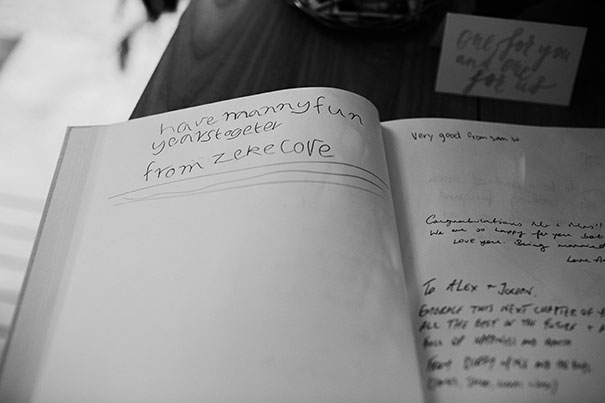 one for you
and one
for us
have manny fun
yearstogeter
from ZeKe Cove
very good from sam w
Congratulations Mr & Mrs!!
We are so happy for you both
Love you. Being married
Love
To ALEX + JORDAN,
EMBRACE THIS NEXT CHAPTER OF
ALL THE BEST IN THE FUTURE +
FULL OF HAPPINESS AND
FROM